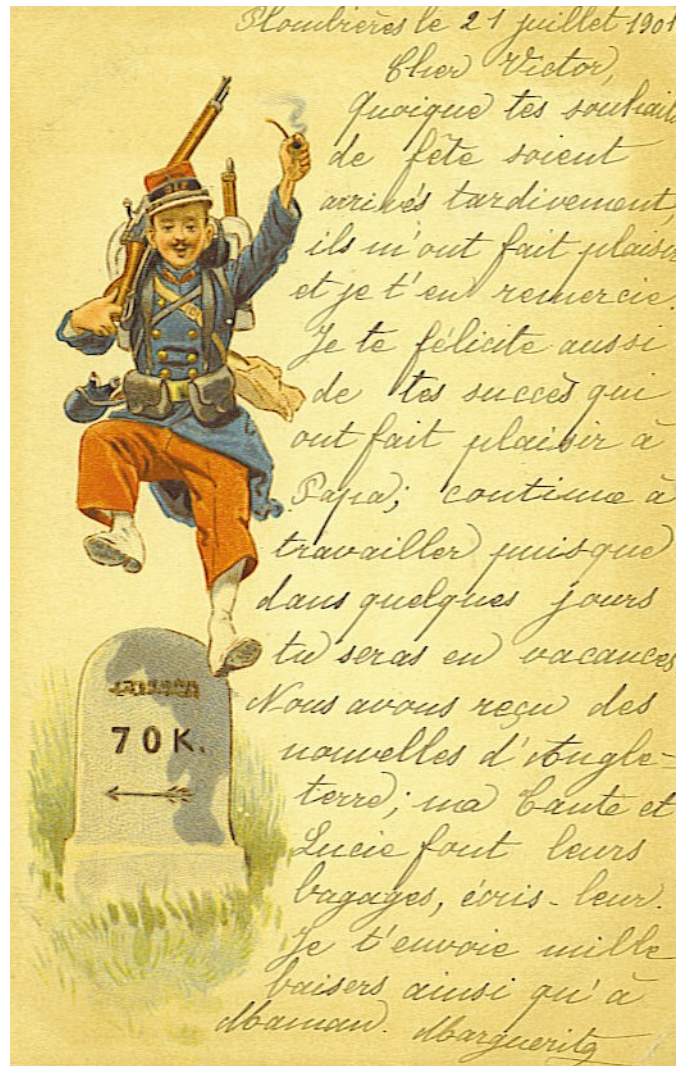 Plombières le 21 juillet 1901
Cher Victor,
Quoique tes souhaits
de fête soient
arrivés tardivement,
ils m'ont fait plaisir
et je t'en remercie.
Je te félicite aussi
de tes succès qui
ont fait plaisir à
Papa; continue à
travailler puisque
dans quelques jours
tu seras en vacances
Nous avons reçu des
nouvelles d'Angle-
terre; ma tante et
Lucie font leurs
bagages, écris-leur.
Je t'envoie mille
baisers ainsi qu'à
Maman. Marguerite
70 K.